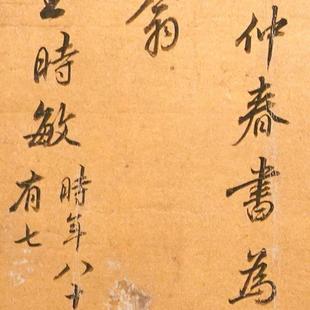 仲春書為
翁
王時敏
時年八十
有七